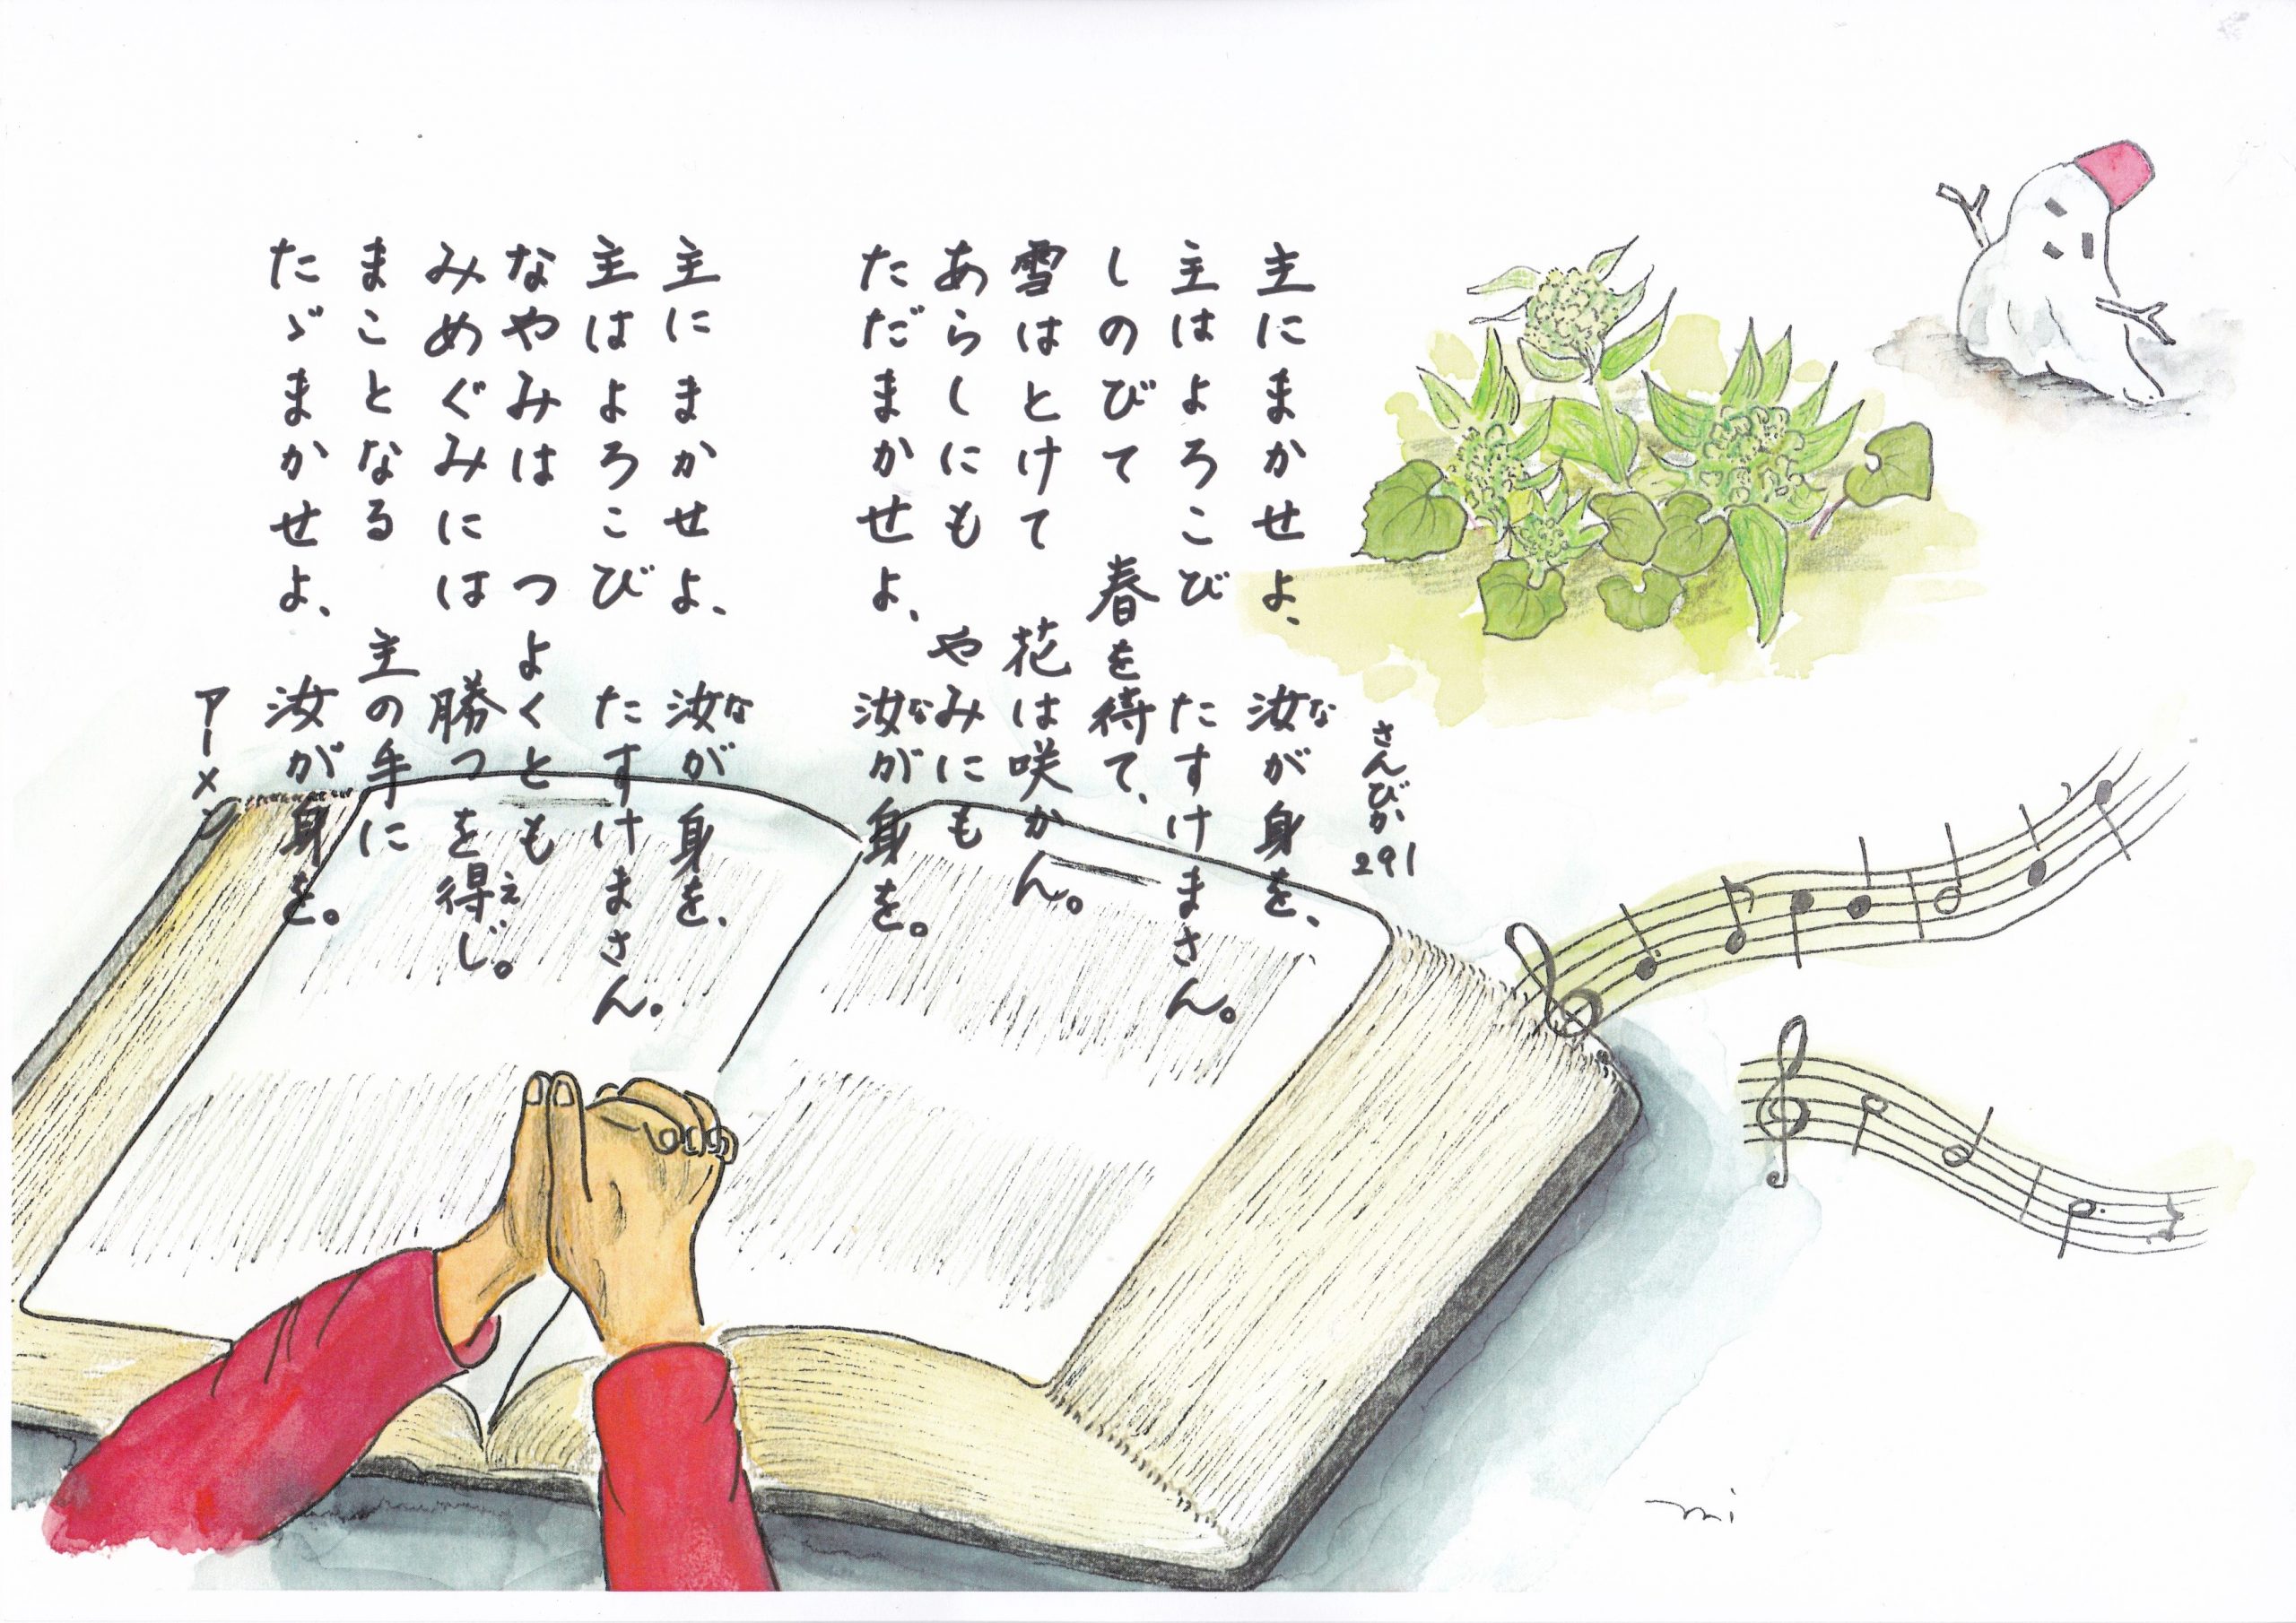 さんびか291
主にまかせよ、 汝が身を、
主はよろこび たすけまさん。
しのびて 春を待て、
雪はとけて 花は咲かん。
あらしにも やみにも
ただまかせよ、 汝が身を。
主にまかせよ、 汝が身を、
主はよろこび たすけまさん。
なやみは つよくとも
みめぐみには 勝つを得じ。
まことなる 主の手に
たゞまかせよ、 汝が身を。
アーメン
mi